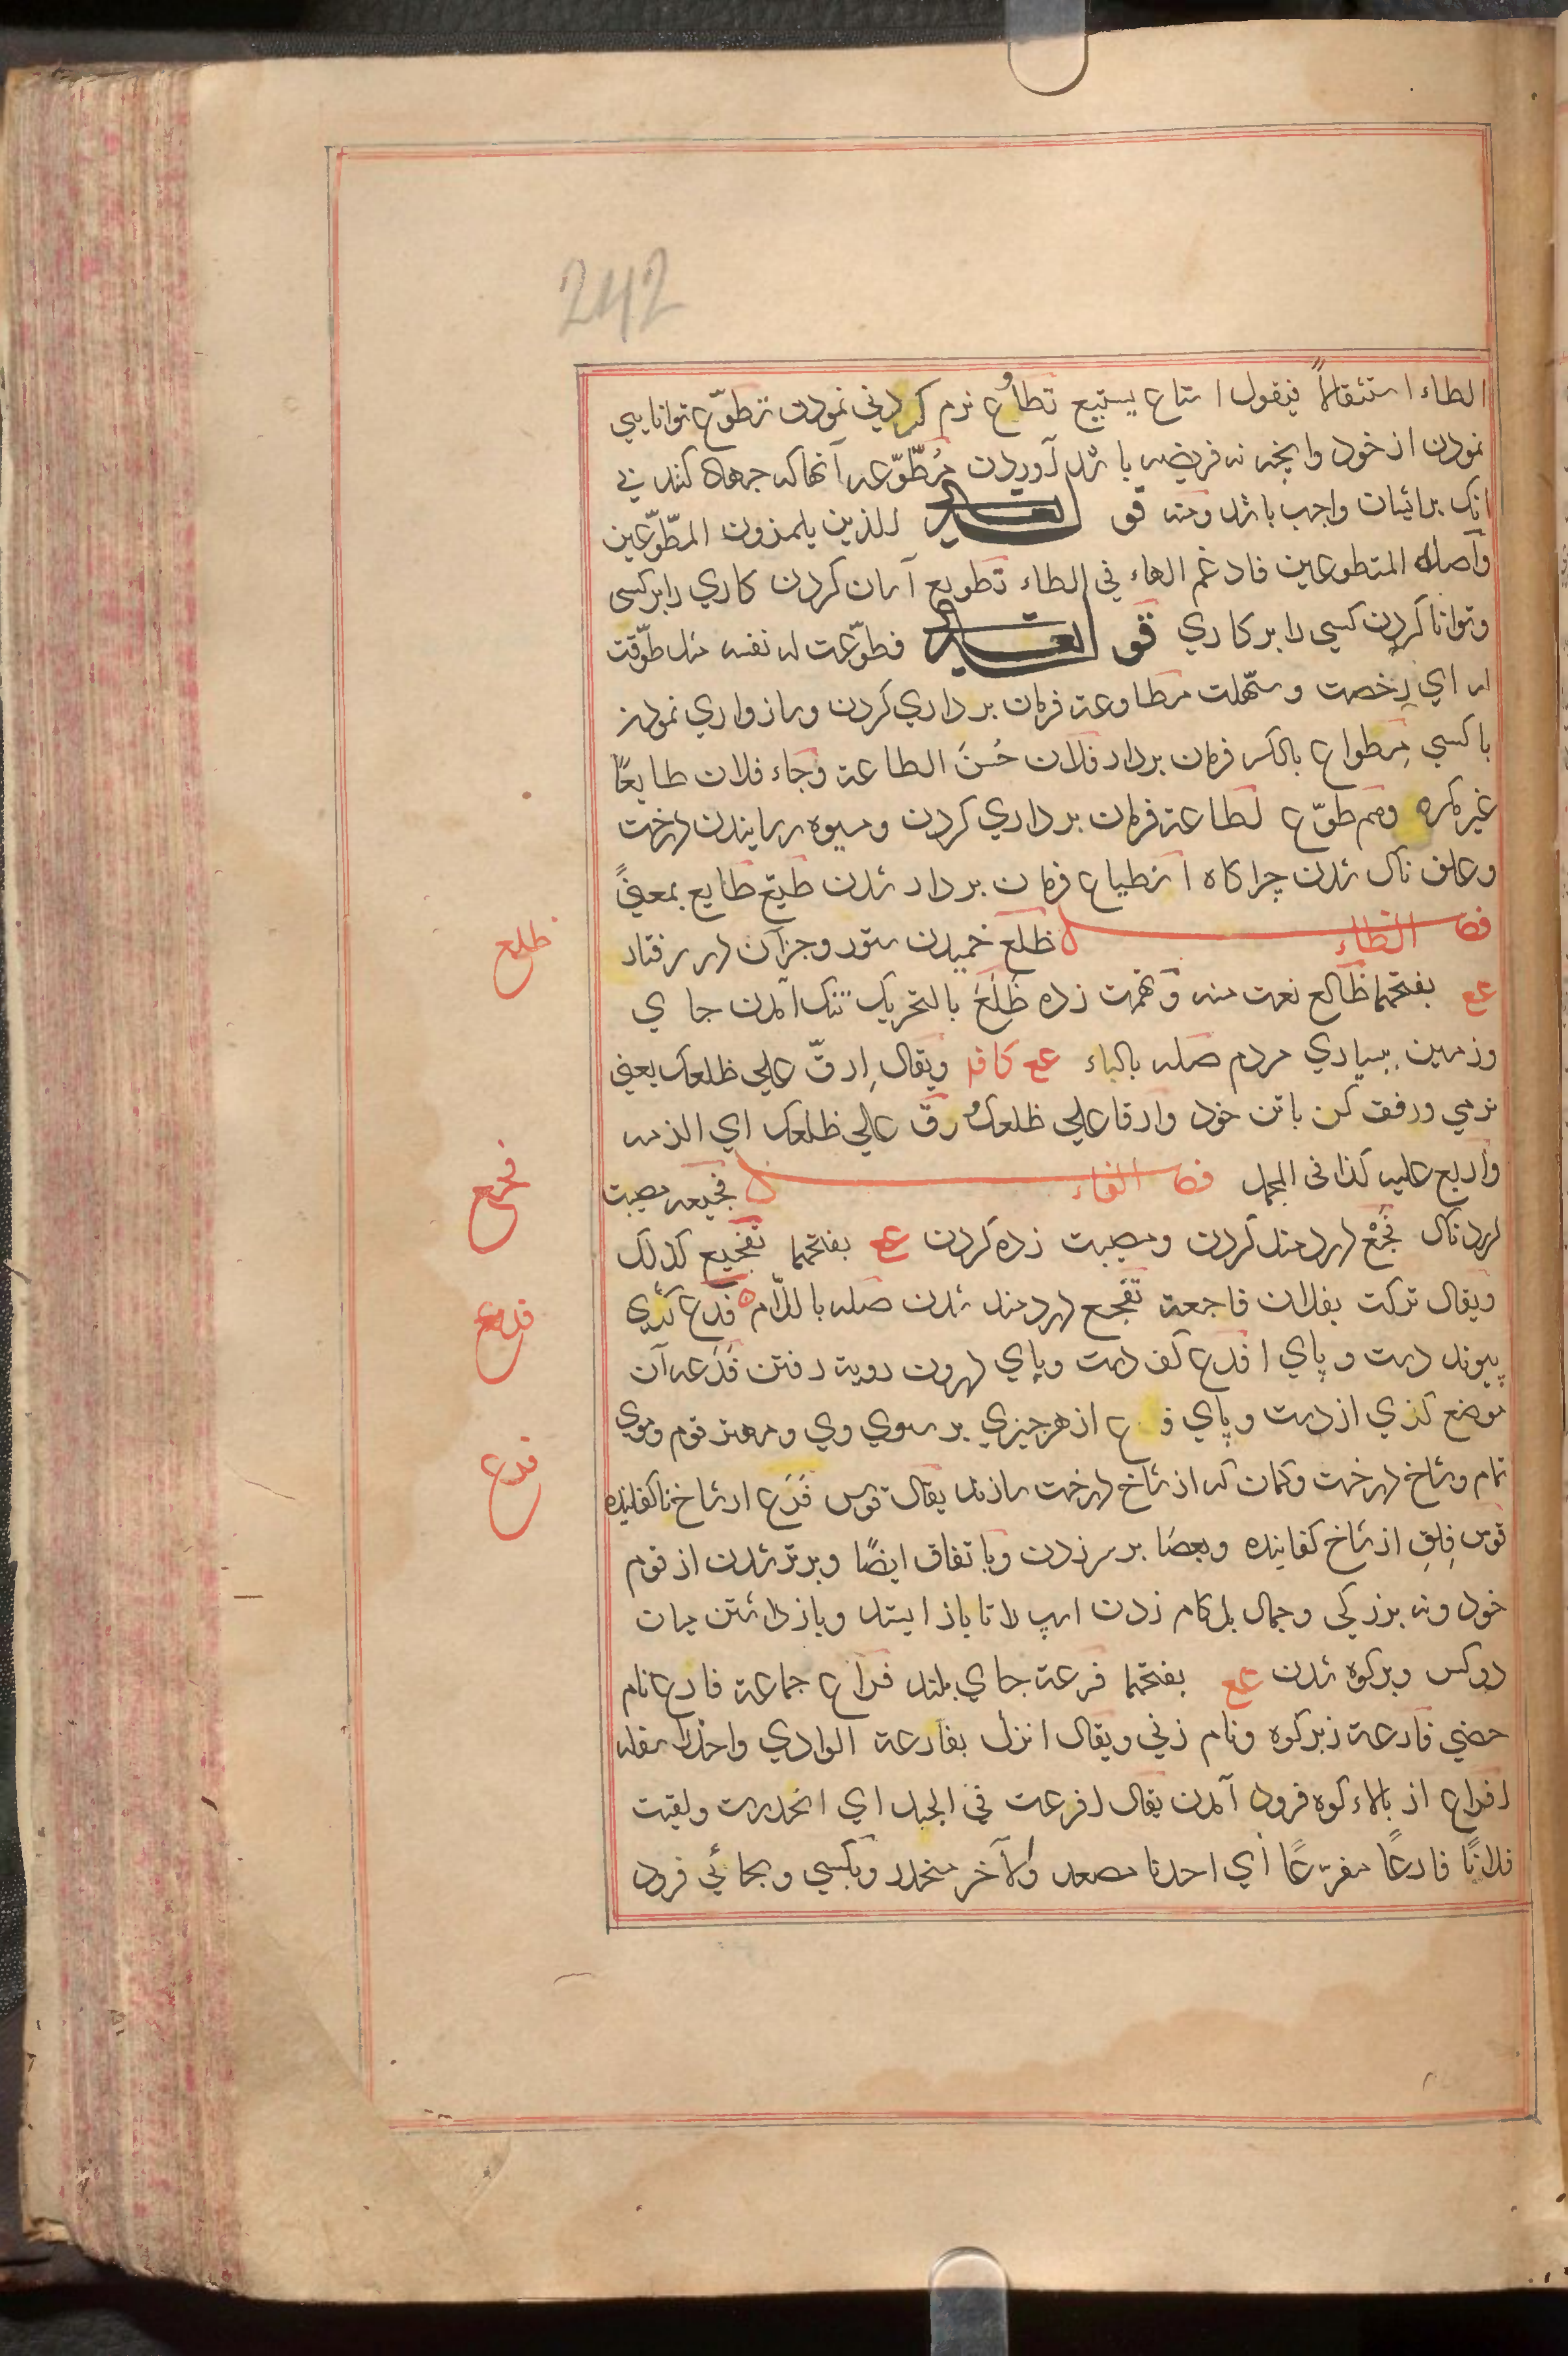 242
الطاء استثقالاً فيقول استاع يستيع تطاوُع نرم كردني نمودن تطوّع توانايي
نمودن از خود وانچه نه فريضه باشد آوردن مُطّوّعه آنها كه جهاد كنند بي
انك برايشان واجب باشد ومنه قو الذين يلمزون المطّوّعين
وأصله المتطوعين فادغم التاء في الطاء تطويع آسان كردن كاري را بركسى
وتوانا كردن كسي را بر كاري قو فطوّعت له نفسه مثل طوّقت
له اي رخصت وسهّلت مطاوعة فرمان برداري كردن وسازواري نمودن
با كسي مِطواع بالكسر فرمان بردار فلان حُسنُ الطاعة وجاء فلان طايعًا
غير مكره وهم طوّع اطاعة فرمان برداري كردن وميوه رسايندن درخت
وعلف ناك شدن چراكاه انطياع فرمان بردار شدن طيّع طايع بمعنىً
فصل الظاء ظلع خميدن ستور وجز آن در رفتار
عع بفتحهما ظالع نعت منه وتهمت زده ظَلَعَ بالتحريك تنك آمدن جاي
وزمين ببسياري مردم صله بالباء عع كافر ويقال اِرقَ علي ظلعك يعني
نرمي ورفق كن باتن خود وارقا علي ظلعك ورقّ علي ظلعك اي الزمه
واربع عليه كذا في المجمل فصل الفاء فجيعه مصيبت
دردناك فَجْع دردمند كردن ومصيبت زده كردن عع بفتحهما تفجيع كذلك
ويقال تركت بفلان فاجعة تفجع دردمند شدن صله باللّام فدع كژي
پيوند دست وپاي افدع كف دست وپاي درون رويه رفتن فَدَعه آن
موضع كژي از دست وپاي ع از هر چيزي بر سوي وي ومهتر قوم وموي
تمام وشاخ درخت وكمان كه از شاخ درخت سازند يقال قوس فَرَع از شاخ ناكفانيده
قوس فِلق از شاخ كفانيده وبعصا بر سر زدن وباتفاق ايضًا وبرتر شدن از قوم
خود ونه بزركي وجمال بلكام زدن اسپ را تا باز ايستد وباز داشتن ميان
دوكس وبركوه شدن عع بفتحهما فرعة جاي بلند فراع جماعة فارع نام
حصني فارعة زبر كوه ونام زني ويقال انزل بفارعة الوادي واحذر اسفله
افراع از بالاء كوه فرود آمدن يقال افرعت في الجبل اي انحدرت ولقيت
فلانًا فارعًا مفرّعًا أي احدنا مصعد والآخر منحدر وبكسي وبجائي فرود
ظلع
فجع
فدع
فرع